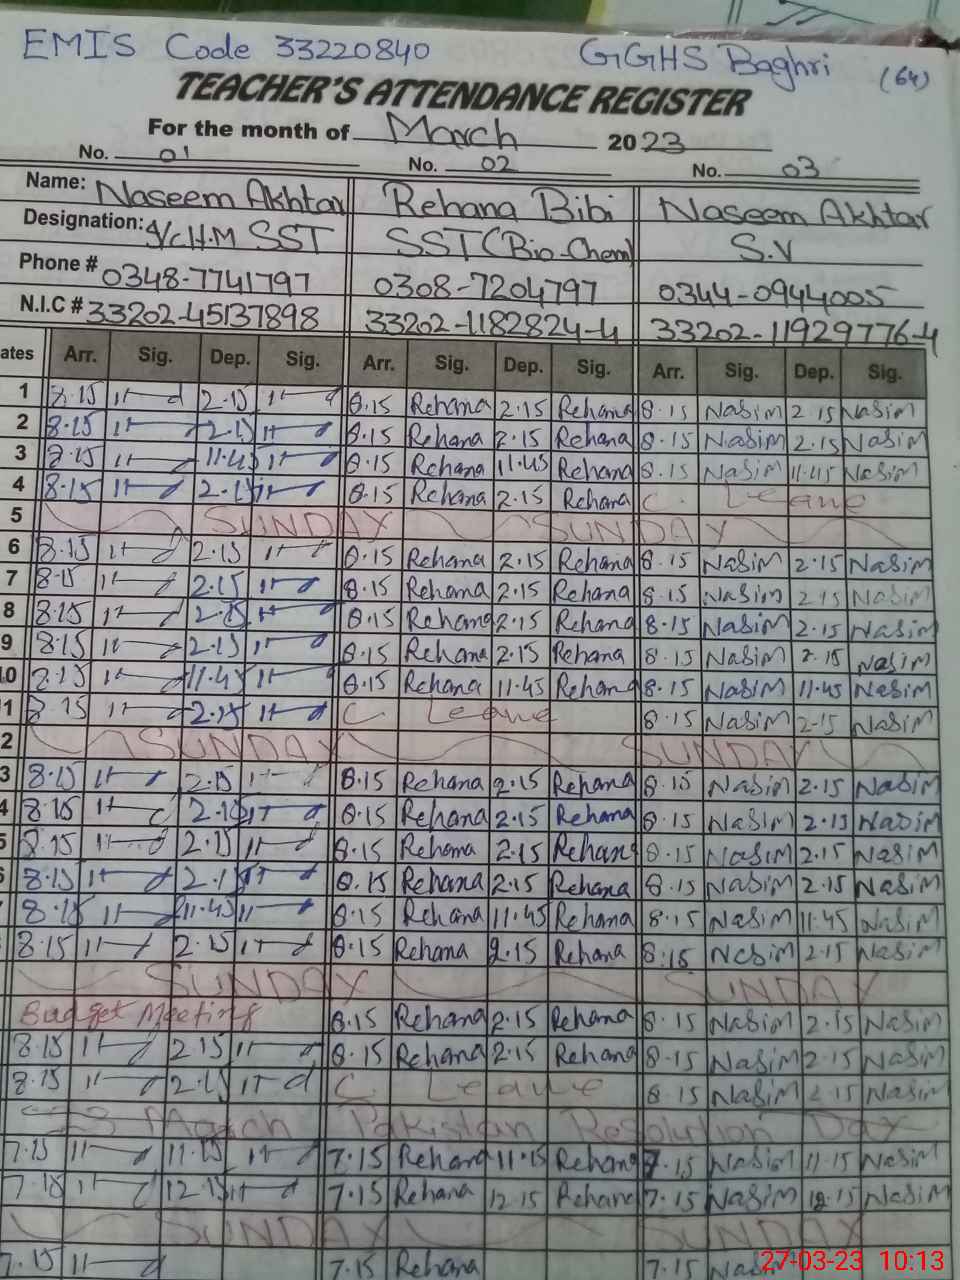 EMIS Code 33220840 GGHS Baghri (64)
TEACHER'S ATTENDANCE REGISTER
For the month of March 2023
No. 01 No. 02 No. 03
Name: Naseem Akhtar Rehana Bibi Naseem Akhtar
Designation: I/c H.M SST SST (Bio-Chem) S.V
Phone # 0348-7741797 0308-7204797 0344-0944005
N.I.C # 33202-45137898 33202-1182824-4 33202-11929776-4
ates Arr. Sig. Dep. Sig. Arr. Sig. Dep. Sig. Arr. Sig. Dep. Sig.
1 8.15 2.15 8.15 Rehana 2.15 Rehana 8.15 Nasim 2.15 Nasim
2 8.15 2.15 8.15 Rehana 2.15 Rehana 8.15 Nasim 2.15 Nasim
3 8.15 11.45 8.15 Rehana 11.45 Rehana 8.15 Nasim 11.45 Nasim
4 8.15 2.15 8.15 Rehana 2.15 Rehana C. Leave
5 SUNDAY SUNDAY
6 8.15 2.15 8.15 Rehana 2.15 Rehana 8.15 Nasim 2.15 Nasim
7 8.15 2.15 8.15 Rehana 2.15 Rehana 8.15 Nasim 2.15 Nasim
8 8.15 2.15 8.15 Rehana 2.15 Rehana 8.15 Nasim 2.15 Nasim
9 8.15 2.15 8.15 Rehana 2.15 Rehana 8.15 Nasim 2.15 Nasim
10 8.15 11.45 8.15 Rehana 11.45 Rehana 8.15 Nasim 11.45 Nasim
1 8.15 2.15 C. Leave 8.15 Nasim 2.15 Nasim
2 SUNDAY SUNDAY
3 8.15 2.15 8.15 Rehana 2.15 Rehana 8.15 Nasim 2.15 Nasim
4 8.15 2.15 8.15 Rehana 2.15 Rehana 8.15 Nasim 2.15 Nasim
5 8.15 2.15 8.15 Rehana 2.15 Rehana 8.15 Nasim 2.15 Nasim
6 8.15 2.15 8.15 Rehana 2.15 Rehana 8.15 Nasim 2.15 Nasim
8.15 11.45 8.15 Rehana 11.45 Rehana 8.15 Nasim 11.45 Nasim
8.15 2.15 8.15 Rehana 2.15 Rehana 8.15 Nasim 2.15 Nasim
SUNDAY SUNDAY
Budget Meeting 8.15 Rehana 2.15 Rehana 8.15 Nasim 2.15 Nasim
8.15 2.15 8.15 Rehana 2.15 Rehana 8.15 Nasim 2.15 Nasim
8.15 2.15 C. Leave 8.15 Nasim 2.15 Nasim
23 March Pakistan Resolution Day
7.15 11.15 7.15 Rehana 11.15 Rehana 7.15 Nasim 11.15 Nasim
7.15 12.15 7.15 Rehana 12.15 Rehana 7.15 Nasim 12.15 Nasim
SUNDAY SUNDAY
7.15 7.15 Rehana 7.15 Nasim
27-03-23 10:13